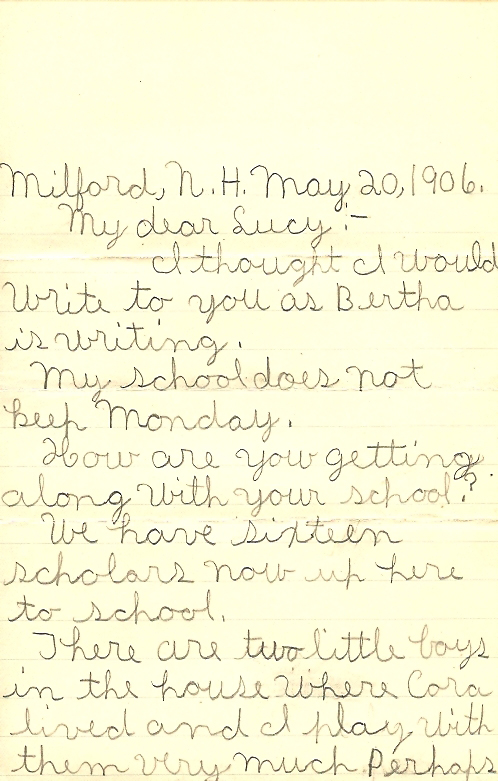 Milford, N. H. May 20, 1906.
My dear Lucy :-
I thought I would
Write to you as Bertha
is writing.
My school does not
keep Monday.
How are you getting
along With your school?
We have sixteen
scholars now up here
to school.
There are two little boys
in the house Where Cora
lived and I play With
them very much. Perhaps